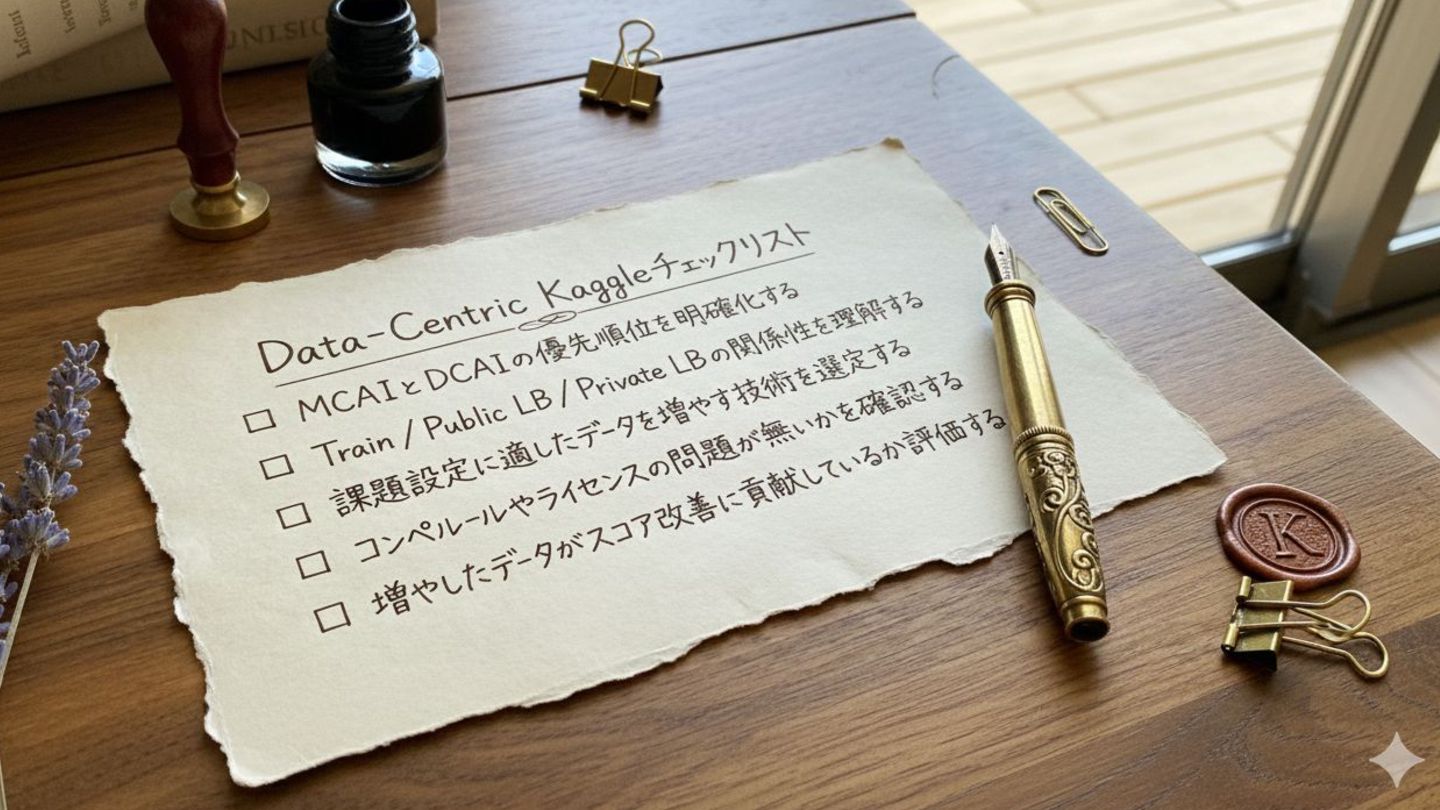 Data-Centric Kaggleチェックリスト
□ MCAIとDCAIの優先順位を明確化する
□ Train / Public LB / Private LBの関係性を理解する
□ 課題設定に適したデータを増やす技術を選定する
□ コンペルールやライセンスの問題が無いかを確認する
□ 増やしたデータがスコア改善に貢献しているか評価する
K